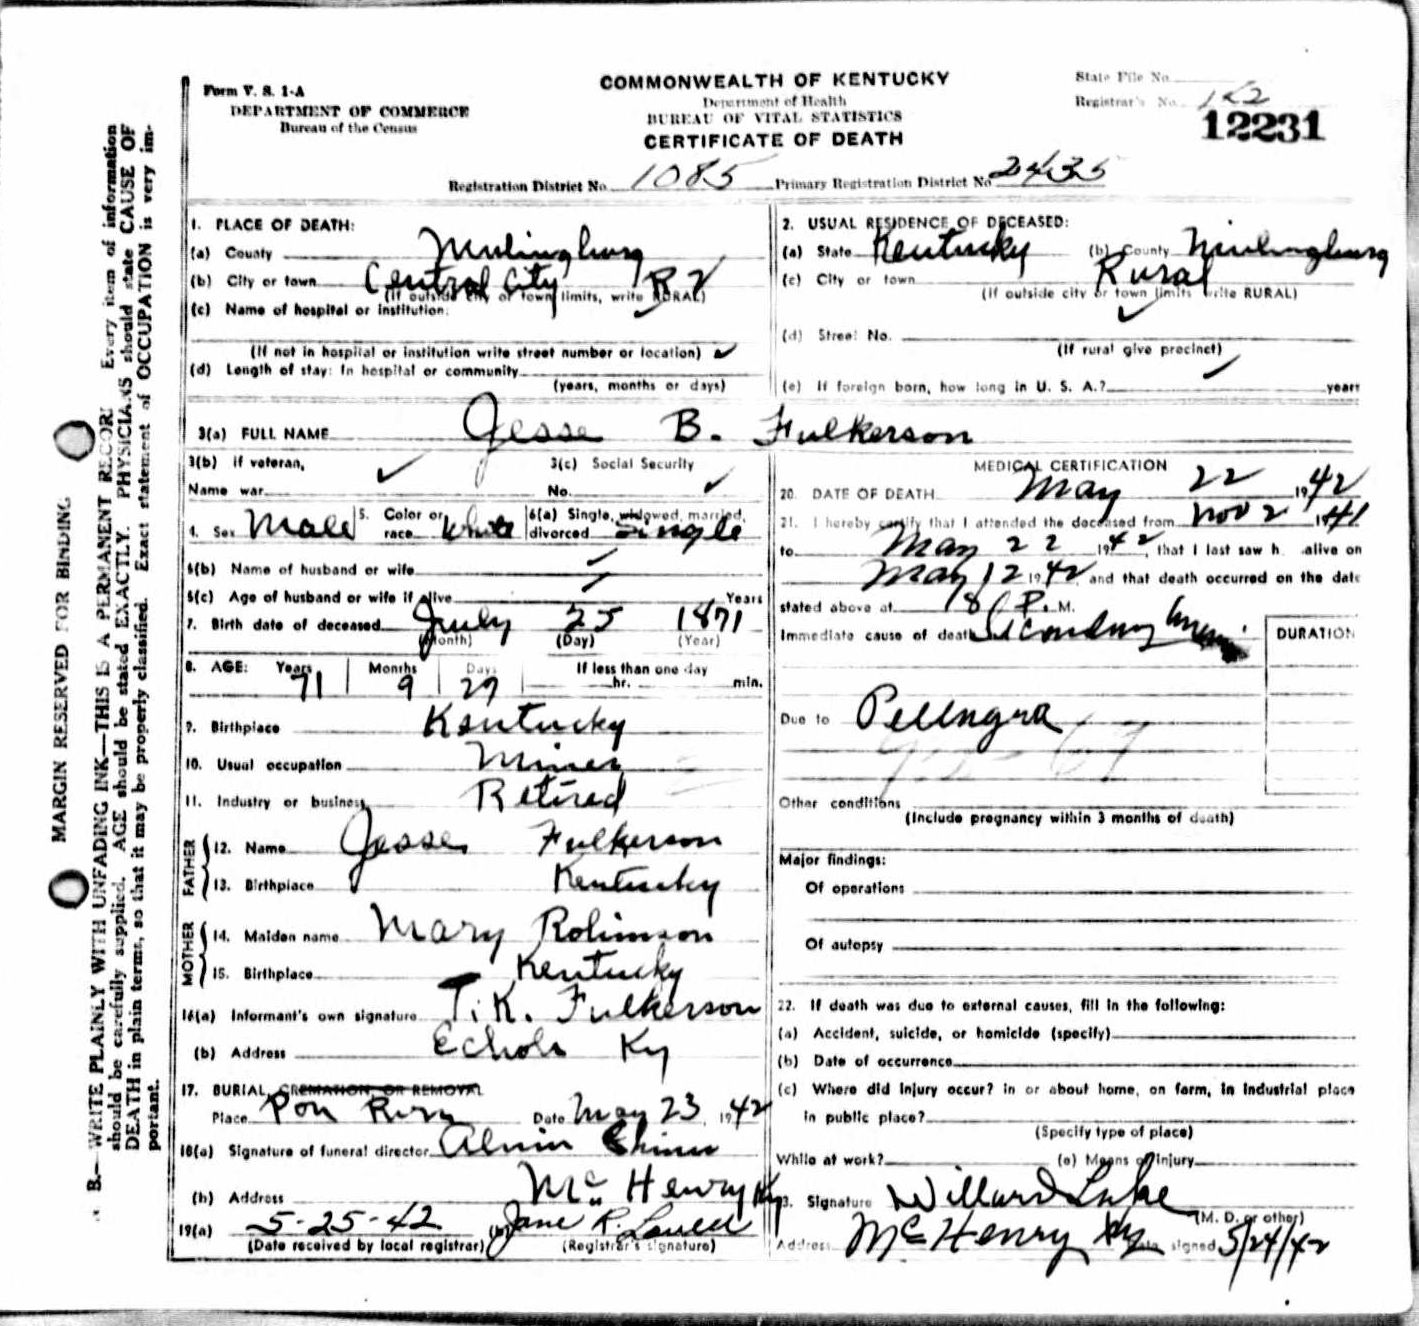 Form V. S. 1-A
DEPARTMENT OF COMMERCE
Bureau of the Census
COMMONWEALTH OF KENTUCKY
Department of Health
BUREAU OF VITAL STATISTICS
CERTIFICATE OF DEATH
State File No.
Registrar's No.
12231
Registration District No. 1085 Primary Registration District No 2435
MARGIN RESERVED FOR BINDING
B.—WRITE PLAINLY WITH UNFADING INK—THIS IS A PERMANENT RECORD Every item of information
should be carefully supplied. AGE should be stated EXACTLY. PHYSICIANS should state CAUSE OF
DEATH in plain terms, so that it may be properly classified. Exact statement of OCCUPATION is very im-
portant.
1. PLACE OF DEATH:
(a) County
(b) City or town Central City R 2
(If outside city or town limits, write RURAL)
(c) Name of hospital or institution:
(If not in hospital or institution write street number or location) ✓
(d) Length of stay: In hospital or community
(years, months or days)
2. USUAL RESIDENCE OF DECEASED:
(a) State Kentucky (b) County
(c) City or town Rural
(If outside city or town limits write RURAL)
✓
(d) Street No.
(If rural give precinct)
✓
(e) If foreign born, how long in U. S. A.? years
3(a) FULL NAME Jesse B. Fulkerson
3(b) if veteran, ✓ 3(c) Social Security
Name war No. ✓
4. Sex Male 5. Color or race White 6(a) Single, widowed, married, divorced Single
6(b) Name of husband or wife ✓
6(c) Age of husband or wife if alive ✓ Years
7. Birth date of deceased July 25 1871
(Month) (Day) (Year)
8. AGE: Years Months Days If less than one day
71 9 27 hr. min.
9. Birthplace Kentucky
10. Usual occupation Miner
11. Industry or business Retired
FATHER
12. Name Jesse Fulkerson
13. Birthplace Kentucky
MOTHER
14. Maiden name Mary Robinson
15. Birthplace Kentucky
16(a) Informant's own signature T. K. Fulkerson
(b) Address Echols Ky
17. BURIAL, CREMATION OR REMOVAL
Place Date May 23, 1942
18(a) Signature of funeral director Alvin
(b) Address Mc Henry Ky
19(a) 5-25-42 (b) Jane R.
(Date received by local registrar) (Registrar's signature)
MEDICAL CERTIFICATION
20. DATE OF DEATH May 22 1942
21. I hereby certify that I attended the deceased from Nov 2 1941
to May 22 1942, that I last saw h alive on
May 12 1942 and that death occurred on the date
stated above at 8 P. M.
Immediate cause of death Secondary DURATION
Due to
Other conditions
(Include pregnancy within 3 months of death)
Major findings:
Of operations
Of autopsy
22. If death was due to external causes, fill in the following:
(a) Accident, suicide, or homicide (specify)
(b) Date of occurrence
(c) Where did injury occur? in or about home, on farm, in industrial place
in public place?
(Specify type of place)
While at work? (e) Means of injury
23. Signature Willard Lake
(M. D. or other)
Address McHenry Ky Date signed 5/24/42